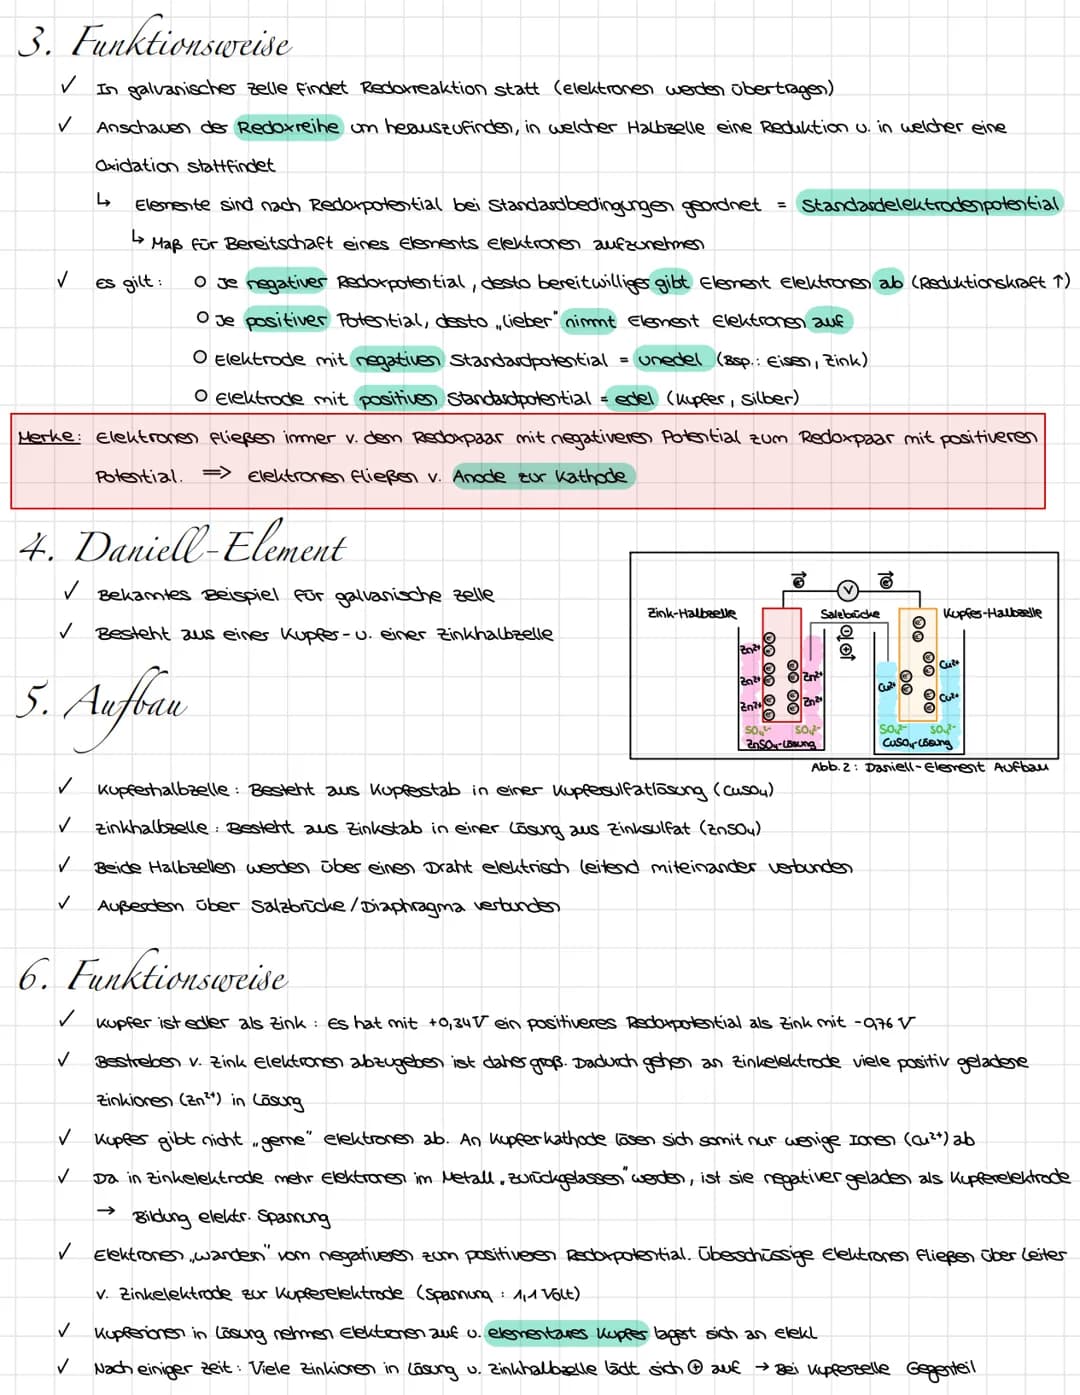 3. Funktionsweise
✓ In galvanischer Zelle findet Redoxreaktion statt (Elektronen werden übertragen)
✓ Anschauen der Redoxreihe um herauszufinden, in welcher Halbzelle eine Reduktion u. in welcher eine
Oxidation stattfindet
↳ Elemente sind nach Redoxpotential bei Standardbedingungen geordnet = Standardelektrodenpotential
↳ Maß für Bereitschaft eines Elements Elektronen aufzunehmen
✓ es gilt: o Je negativer Redoxpotential, desto bereitwilliger gibt Element Elektronen ab (Reduktionskraft ↑)
o Je positiver Potential, desto „lieber" nimmt Element Elektronen auf
o Elektrode mit negativen Standardpotential = unedel (Bsp.: Eisen, Zink)
o Elektrode mit positiven Standardpotential = edel (Kupfer, Silber)
Merke: Elektronen fließen immer v. dem Redoxpaar mit negativeren Potential zum Redoxpaar mit positiveren
Potential. => Elektronen fließen v. Anode zur Kathode
4. Daniell-Element
✓ Bekanntes Beispiel für galvanische Zelle
✓ Besteht aus einer Kupfer- u. einer Zinkhalbzelle
e⁻ V e⁻
Zink-Halbzelle Salzbrücke Kupfer-Halbzelle
⊖ ⊕
Zn²⁺ Zn²⁺ Zn²⁺ Zn²⁺ Zn²⁺
Cu²⁺ Cu²⁺ Cu²⁺
SO₄²⁻ SO₄²⁻ SO₄²⁻ SO₄²⁻
ZnSO₄-Lösung CuSO₄-Lösung
Abb. 2: Daniell-Element Aufbau
5. Aufbau
✓ Kupferhalbzelle: Besteht aus Kupferstab in einer Kupfersulfatlösung (CuSO₄)
✓ Zinkhalbzelle: Besteht aus Zinkstab in einer Lösung aus Zinksulfat (ZnSO₄)
✓ Beide Halbzellen werden über einen Draht elektrisch leitend miteinander verbunden
✓ Außerdem über Salzbrücke/Diaphragma verbunden
6. Funktionsweise
✓ Kupfer ist edler als Zink: Es hat mit +0,34V ein positiveres Redoxpotential als Zink mit -0,76 V
✓ Bestreben v. Zink Elektronen abzugeben ist daher groß. Dadurch gehen an Zinkelektrode viele positiv geladene
Zinkionen (Zn²⁺) in Lösung
✓ Kupfer gibt nicht „gerne" Elektronen ab. An Kupferkathode lösen sich somit nur wenige Ionen (Cu²⁺) ab
✓ Da in Zinkelektrode mehr Elektronen im Metall „zurückgelassen" werden, ist sie negativer geladen als Kupferelektrode
→ Bildung elektr. Spannung
✓ Elektronen „wandern" vom negativeren zum positiveren Redoxpotential. Überschüssige Elektronen fließen über Leiter
v. Zinkelektrode zur Kupferelektrode (Spannung: 1,1 Volt)
✓ Kupferionen in Lösung nehmen Elektronen auf u. elementares Kupfer lagert sich an Elekt.
✓ Nach einiger Zeit: Viele Zinkionen in Lösung u. Zinkhalbzelle lädt sich ⊕ auf → Bei Kupferzelle Gegenteil